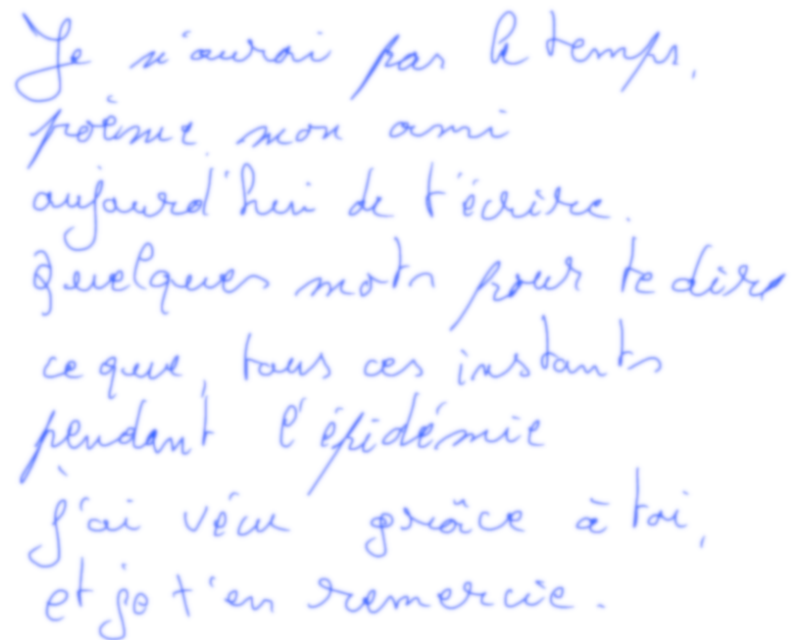 Je n'aurai pas le temps,
poème mon ami
aujourd'hui de t'écrire.
Quelques mots pour te dire
ce que, tous ces instants
pendant l'épidémie
j'ai vécu grâce à toi,
et je t'en remercie.